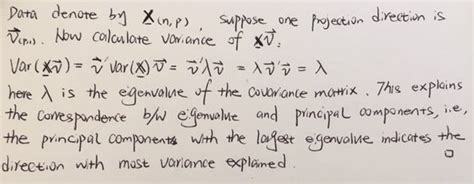 Data denote by X(n,p), suppose one projection direction is
v⃗(p,1). Now calculate variance of Xv⃗:
Var(Xv⃗) = v⃗'var(X)v⃗ = v⃗'λv⃗ = λv⃗'v⃗ = λ
here λ is the eigenvalue of the covariance matrix. This explains
the correspondence b/w eigenvalue and principal components, i.e,
the principal components with the largest eigenvalue indicates the
direction with most variance explained.